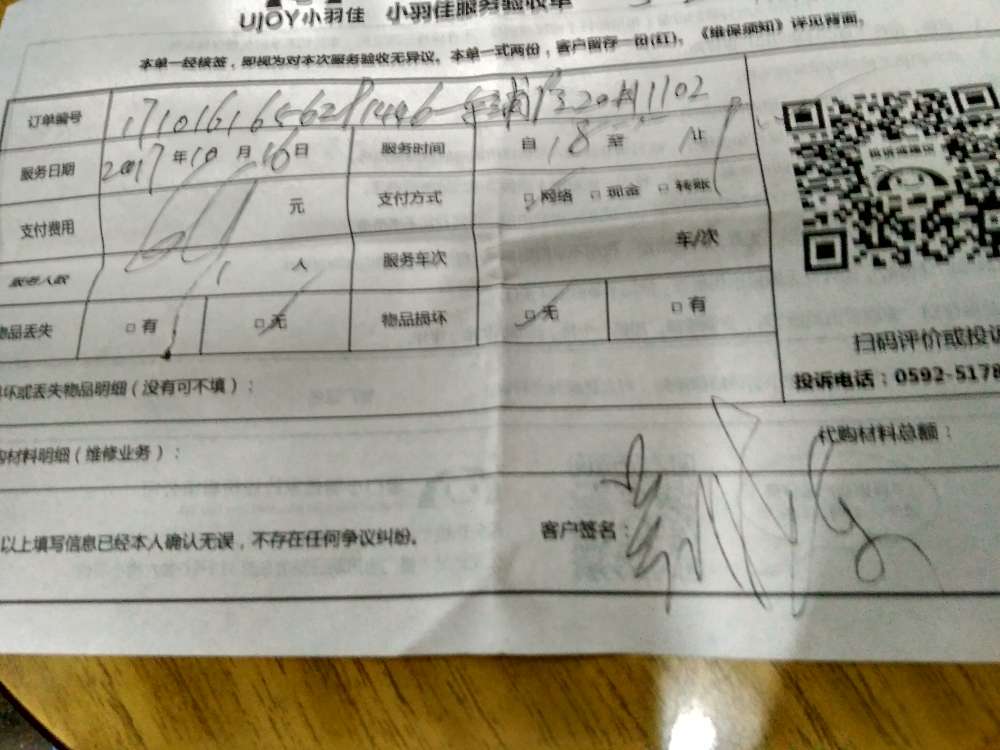 UJOY小羽佳 小羽佳服务验收单
本单一经核签，即视为对本次服务验收无异议。本单一式两份，客户留存一份(红)。《维保须知》详见背面。
订单编号
服务日期 2017年10月16日 服务时间 自18至
支付费用 元 支付方式 □网络 □现金 □转账
服务人数 1人 服务车次 车/次
物品丢失 □有 □无 物品损坏 □无 □有
扫码评价或投诉
投诉电话：0592-5178
坏或丢失物品明细（没有可不填）：
购材料明细（维修业务）： 代购材料总额：
以上填写信息已经本人确认无误，不存在任何争议纠纷。 客户签名：